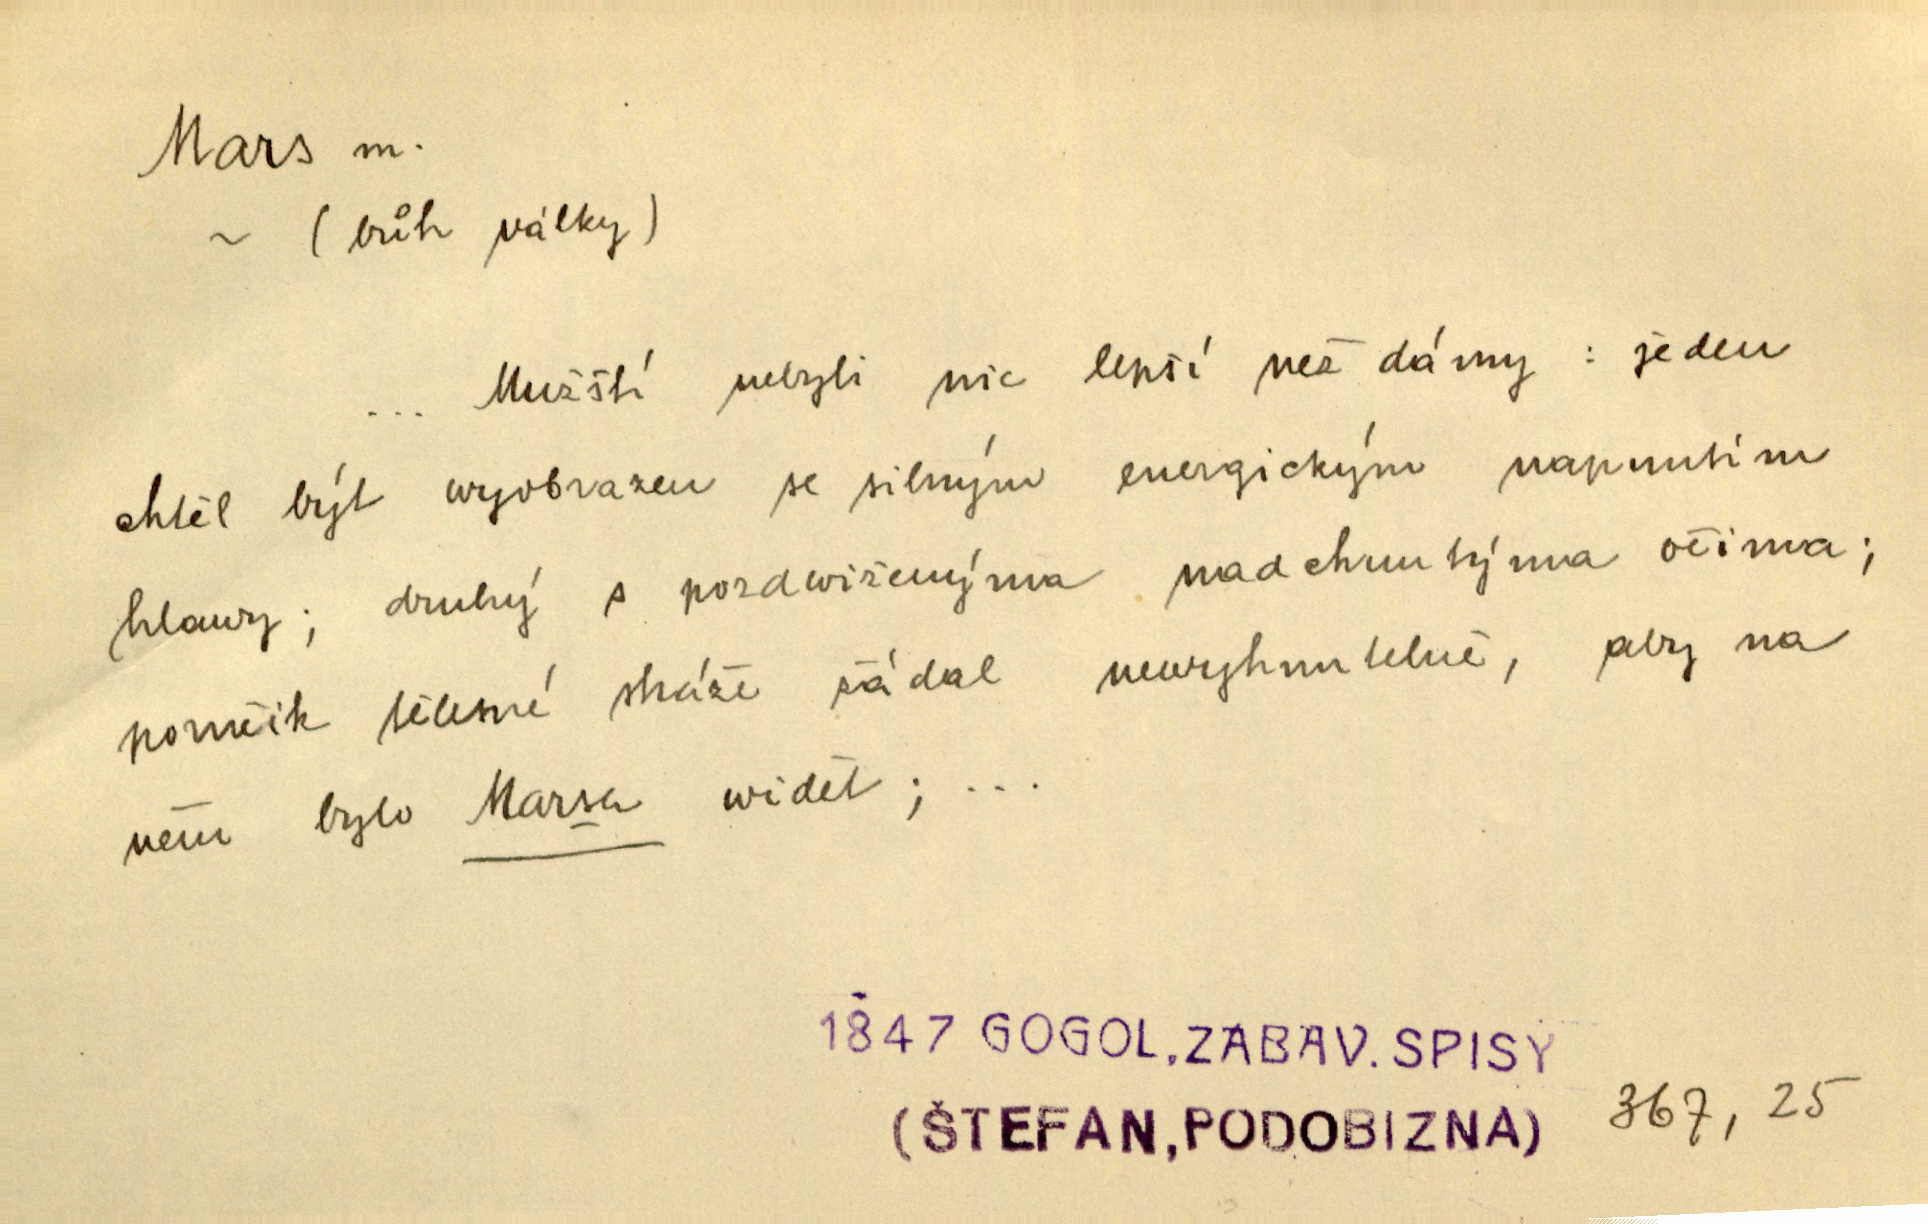 Mars m.
~ (bůh války)
... Mužští nebyli nic lepší než dámy : jeden
chtěl být wyobrazen se silným energickým napnutím
hlawy ; druhý s pozdwiženýma nadchnutýma očima ;
poručík tělesné stráže žádal newyhnutelně, aby na
něm bylo Marsa widět ; ...
1847 GOGOL, ZABAV. SPISY
(ŠTEFAN, PODOBIZNA) 367, 25